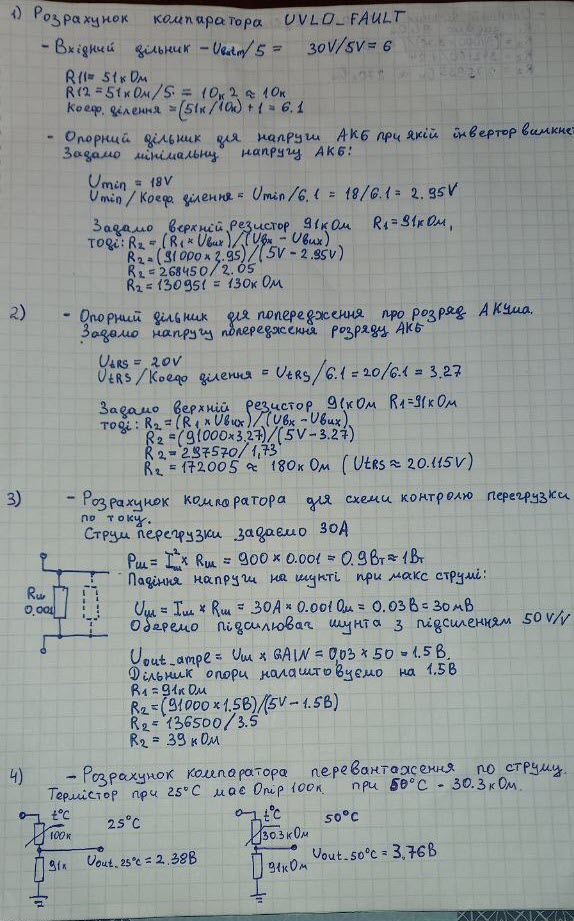 1) Розрахунок компаратора UVLO_FAULT
- Вхідний дільник - Ubatm/5 = 30V/5V = 6
R11 = 51кОм
R12 = 51кОм/5 = 10к2 ≈ 10к
Коеф. ділення = (51к/10к) + 1 = 6.1
- Опорний дільник для напруги АКБ при якій інвертор вимкне
Задамо мінімальну напругу АКБ:
Umin = 18V
Umin/Коеф ділення = Umin/6.1 = 18/6.1 = 2.95V
Задамо верхній резистор 91кОм R1 = 91кОм,
тоді: R2 = (R1 × Uвих)/(Uвх - Uвих)
R2 = (91000 × 2.95)/(5V - 2.95V)
R2 = 268450/2.05
R2 = 130951 = 130кОм
2) - Опорний дільник для попередження про розряд АКума.
Задамо напругу попередження розряду АКБ
UtRS = 20V
UtRS/Коеф ділення = UtRS/6.1 = 20/6.1 = 3.27
Задамо верхній резистор 91кОм R1 = 91кОм
тоді: R2 = (R1 × Uвих)/(Uвх - Uвих)
R2 = (91000 × 3.27)/(5V - 3.27)
R2 = 297570/1.73
R2 = 172005 ≈ 180кОм (UtRS ≈ 20.115V)
3) - Розрахунок компаратора для схеми контролю перегрузки
по току.
Струм перегрузки задаємо 30А
Pш = Iш² × Rш = 900 × 0.001 = 0.9Вт ≈ 1Вт
Падіння напруги на шунті при макс струмі:
Rш
0.001
Uш = Iш × Rш = 30А × 0.001Ом = 0.03В = 30мВ
Оберемо підсилювач шунта з підсиленням 50V/V
Uout_ampl = Uш × GAIN = 0,03 × 50 = 1.5В.
Дільник опори налаштовуємо на 1.5В
R1 = 91кОм
R2 = (91000 × 1.5В)/(5V - 1.5В)
R2 = 136500/3.5
R2 = 39кОм
4) - Розрахунок компаратора перевантаження по струму.
Термістор при 25°C має Опір 100к. при 50°C - 30.3кОм.
t°C 25°C t°C 50°C
100к 30.3кОм
Uout_25°C = 2.38В Uout_50°C = 3,76В
91к 91кОм